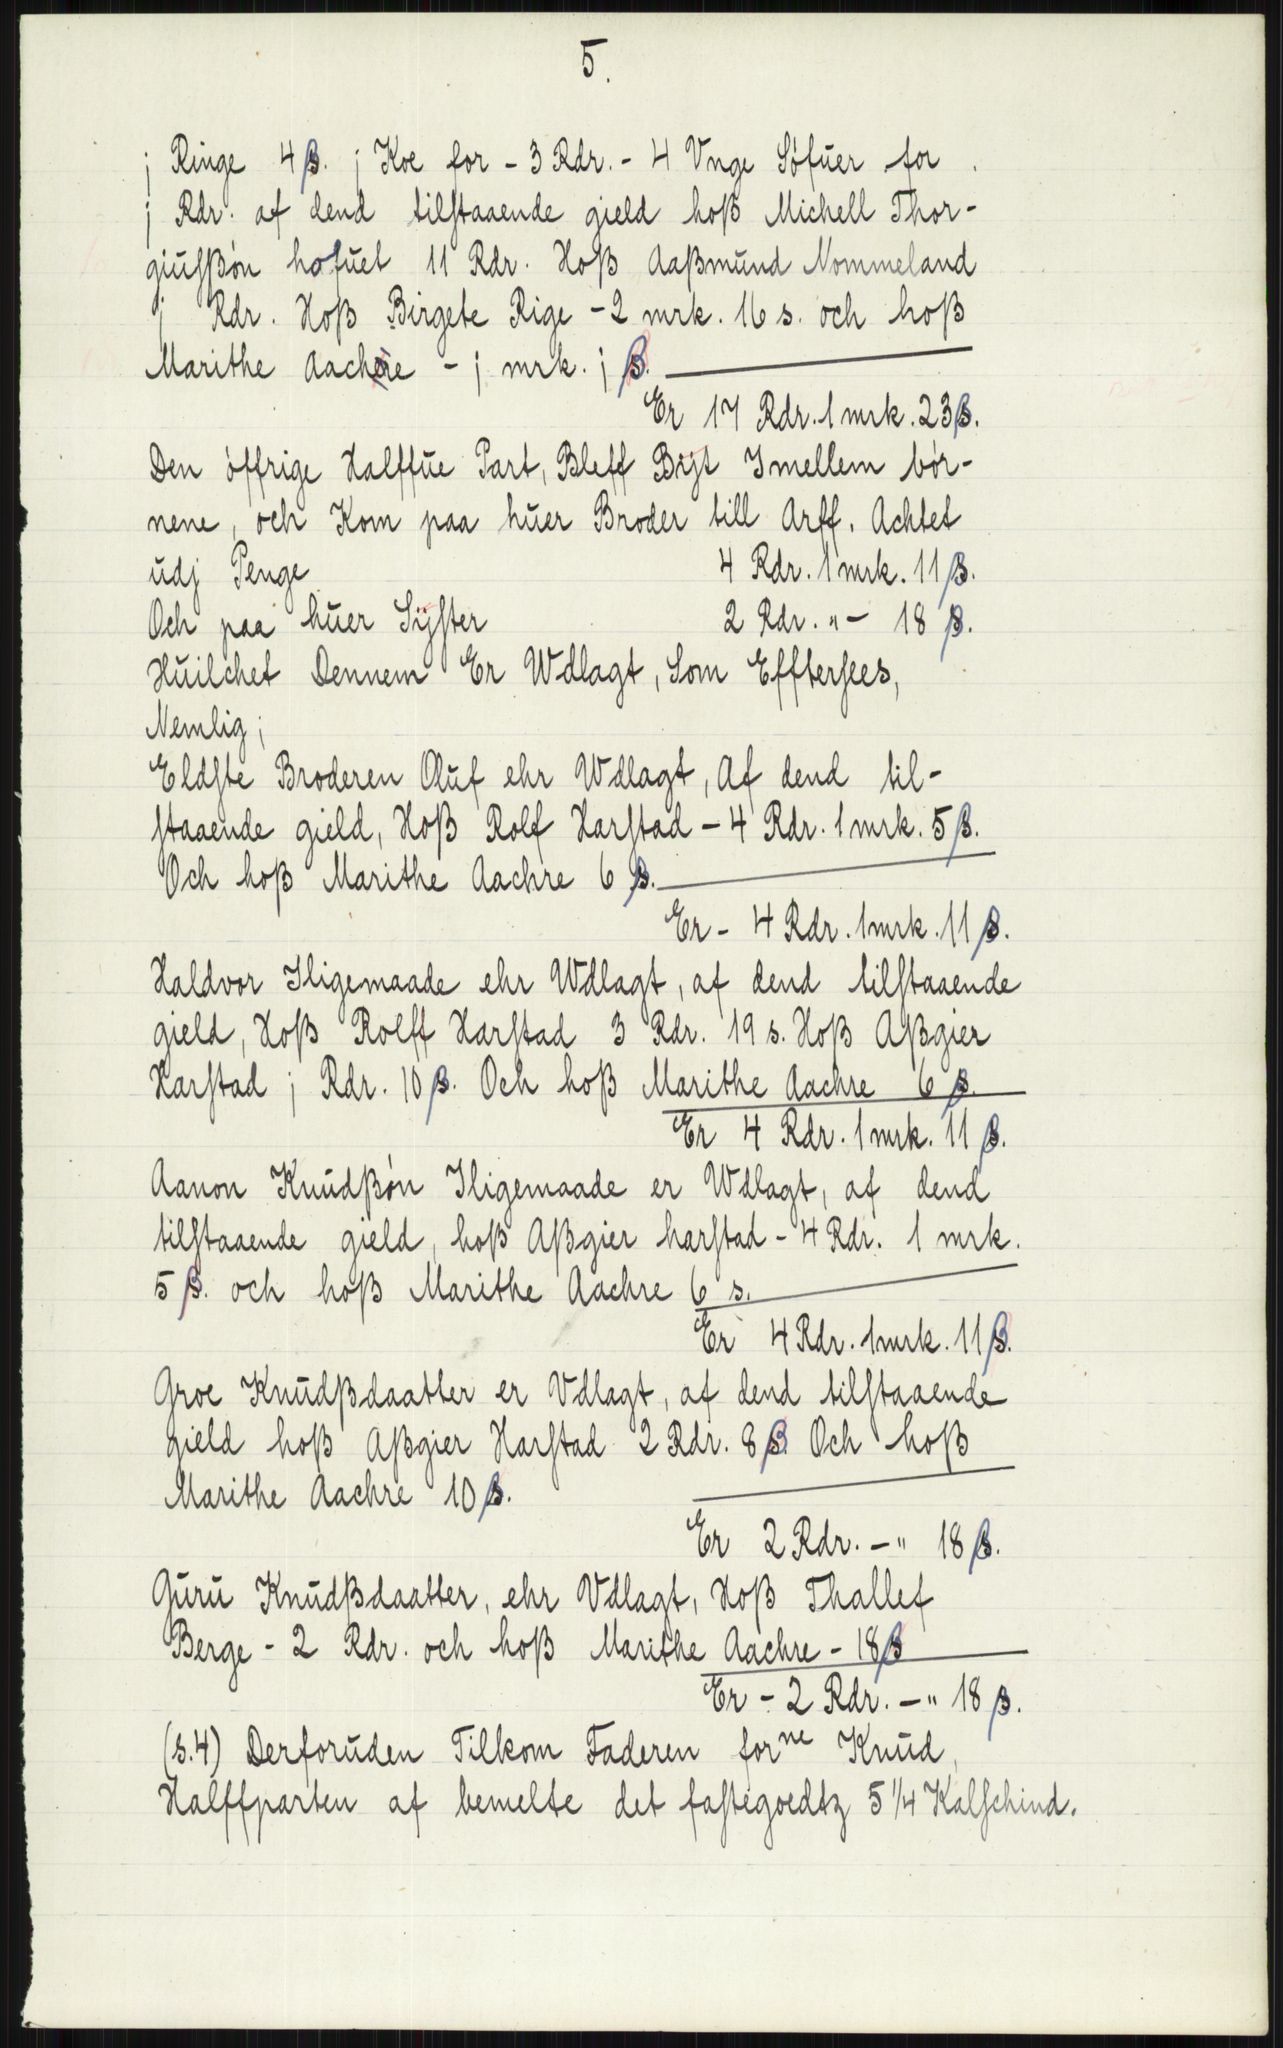 5.
j Ringe 4 ß. j Koe for - 3 Rdr. - 4 Vnge Söfuer for
j Rdr. af dend tilstaaende gield hoß Michell Thor-
giulßön hofuet 11 Rdr. Hoß Aaßmund Nommeland
j Rdr. Hoß Birgete Rige - 2 mrk. 16 s. och hoß
Marithe Aachre - j mrk. j ß.
Er 17 Rdr. 1 mrk. 23 ß.
Den öffrige Halffue Part, Bleff Bÿt Imellem bör-
nene, och Kom paa huer Broder till Arff. Achtet
udj Penge 4 Rdr. 1 mrk. 11 ß.
Och paa huer Sÿster 2 Rdr. " - 18 ß.
Huilchet Dennem Er Wdlagt, Som Efftersees,
Nemlig;
Eldste Broderen Oluf ehr Wdlagt, Af dend til-
staaende gield, Hoß Rolf Harstad - 4 Rdr. 1 mrk. 5 ß.
Och hoß Marithe Aachre 6 ß.
Er - 4 Rdr. 1 mrk. 11 ß.
Haldvor Iligemaade ehr Wdlagt, af dend tilstaaende
gield, Hoß Rolff Harstad 3 Rdr. 19 s. Hoß Aßgier
Harstad j Rdr. 10 ß. Och hoß Marithe Aachre 6 ß.
Er 4 Rdr. 1 mrk. 11 ß.
Aanon Knudßön Iligemaade er Wdlagt, af dend
tilstaaende gield, hoß Aßgier harstad - 4 Rdr. 1 mrk.
5 ß. och hoß Marithe Aachre 6 s.
Er 4 Rdr. 1 mrk. 11 ß.
Groe Knudßdaatter er Vdlagt, af dend tilstaaende
gield hoß Aßgier Harstad 2 Rdr. 8 ß. Och hoß
Marithe Aachre 10 ß.
Er 2 Rdr. - " 18 ß.
Guru Knudßdaatter, ehr Vdlagt, Hoß Thallef
Berge - 2 Rdr. och hoß Marithe Aachre - 18 ß
Er - 2 Rdr. - " 18 ß.
(s.4) Derforuden Tilkom Faderen forne Knud,
Halffparten af bemelte det fastegoedtz 5 1/4 Kalschind.